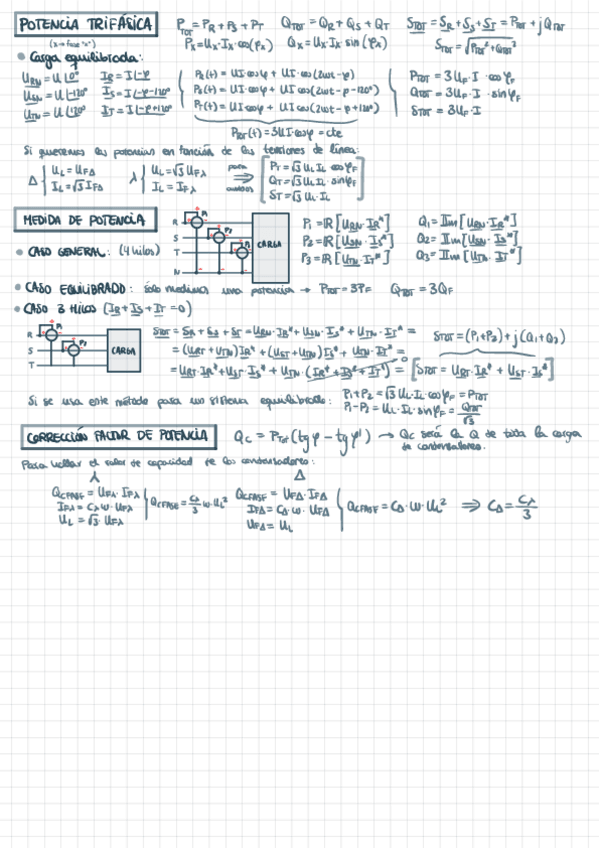 POTENCIA TRIFÁSICA
P_TOT = P_R + P_S + P_T   Q_TOT = Q_R + Q_S + Q_T   S_TOT = S_R + S_S + S_T = P_TOT + j Q_TOT
(x → fase "x")   P_x = U_x · I_x · cos(φ_x)   Q_x = U_x · I_x · sin(φ_x)   S_TOT = √(P_TOT² + Q_TOT²)
• Carga equilibrada:
U_RN = U∠0°   I_R = I∠-φ   P_R(t) = UI cos φ + UI · cos(2ωt - φ)   P_TOT = 3 U_F · I · cos φ_F
U_SN = U∠-120°   I_S = I∠-φ-120°   P_S(t) = UI cos φ + UI cos(2ωt - φ - 120°)   Q_TOT = 3U_F · I · sin φ_F
U_TN = U∠120°   I_T = I∠-φ+120°   P_T(t) = UI cos φ + UI · cos(2ωt - φ + 120°)   S_TOT = 3U_F · I
P_TOT(t) = 3UI · cos φ = cte
Si queremos las potencias en función de las tensiones de línea:
Δ { U_L = U_FΔ   λ { U_L = √3 U_Fλ   para ambos ⇒ [ P_T = √3 U_L I_L cos φ_F
I_L = √3 I_FΔ   I_L = I_Fλ   Q_T = √3 U_L I_L · sin φ_F
S_T = √3 U_L I_L ]
MEDIDA DE POTENCIA
• CASO GENERAL: (4 hilos)
R
S
T
N
P1
P2
P3
CARGA
P1 = ℝ[U_RN · I_R*]   Q1 = Im[U_RN · I_R*]
P2 = ℝ[U_SN · I_S*]   Q2 = Im[U_SN · I_S*]
P3 = ℝ[U_TN · I_T*]   Q3 = Im[U_TN · I_T*]
• CASO EQUILIBRADO: solo medimos una potencia → P_TOT = 3P_F   Q_TOT = 3Q_F
• CASO 3 HILOS (I_R + I_S + I_T = 0)
R
S
T
P1
P2
CARGA
S_TOT = S_R + S_S + S_T = U_RN · I_R* + U_SN · I_S* + U_TN · I_T* =   S_TOT = (P1+P2) + j(Q1+Q2)
= (U_RT + U_TN) I_R* + (U_ST + U_TN) I_S* + U_TN · I_T* =
= U_RT · I_R* + U_ST · I_S* + U_TN · (I_R* + I_S* + I_T*) = 0   [S_TOT = U_RT · I_R* + U_ST · I_S*]
Si se usa este método para un sistema equilibrado:   P1 + P2 = √3 U_L · I_L cos φ_F = P_TOT
P1 - P2 = U_L · I_L · sin φ_F = Q_TOT/√3
CORRECCIÓN FACTOR DE POTENCIA   Q_C = P_TOT (tg φ - tg φ') → Q_C será la Q de toda la carga
de condensadores.
Para hallar el valor de capacidad de los condensadores:
λ   Δ
Q_CFASE = U_Fλ · I_Fλ   Q_CFASE = Cλ/3 ω · U_L²   Q_CFASE = U_FΔ · I_FΔ   Q_CFASE = C_Δ · ω · U_L² ⇒ C_Δ = Cλ/3
I_Fλ = Cλ ω · U_Fλ   I_FΔ = C_Δ · ω · U_FΔ
U_L = √3 · U_Fλ   U_FΔ = U_L